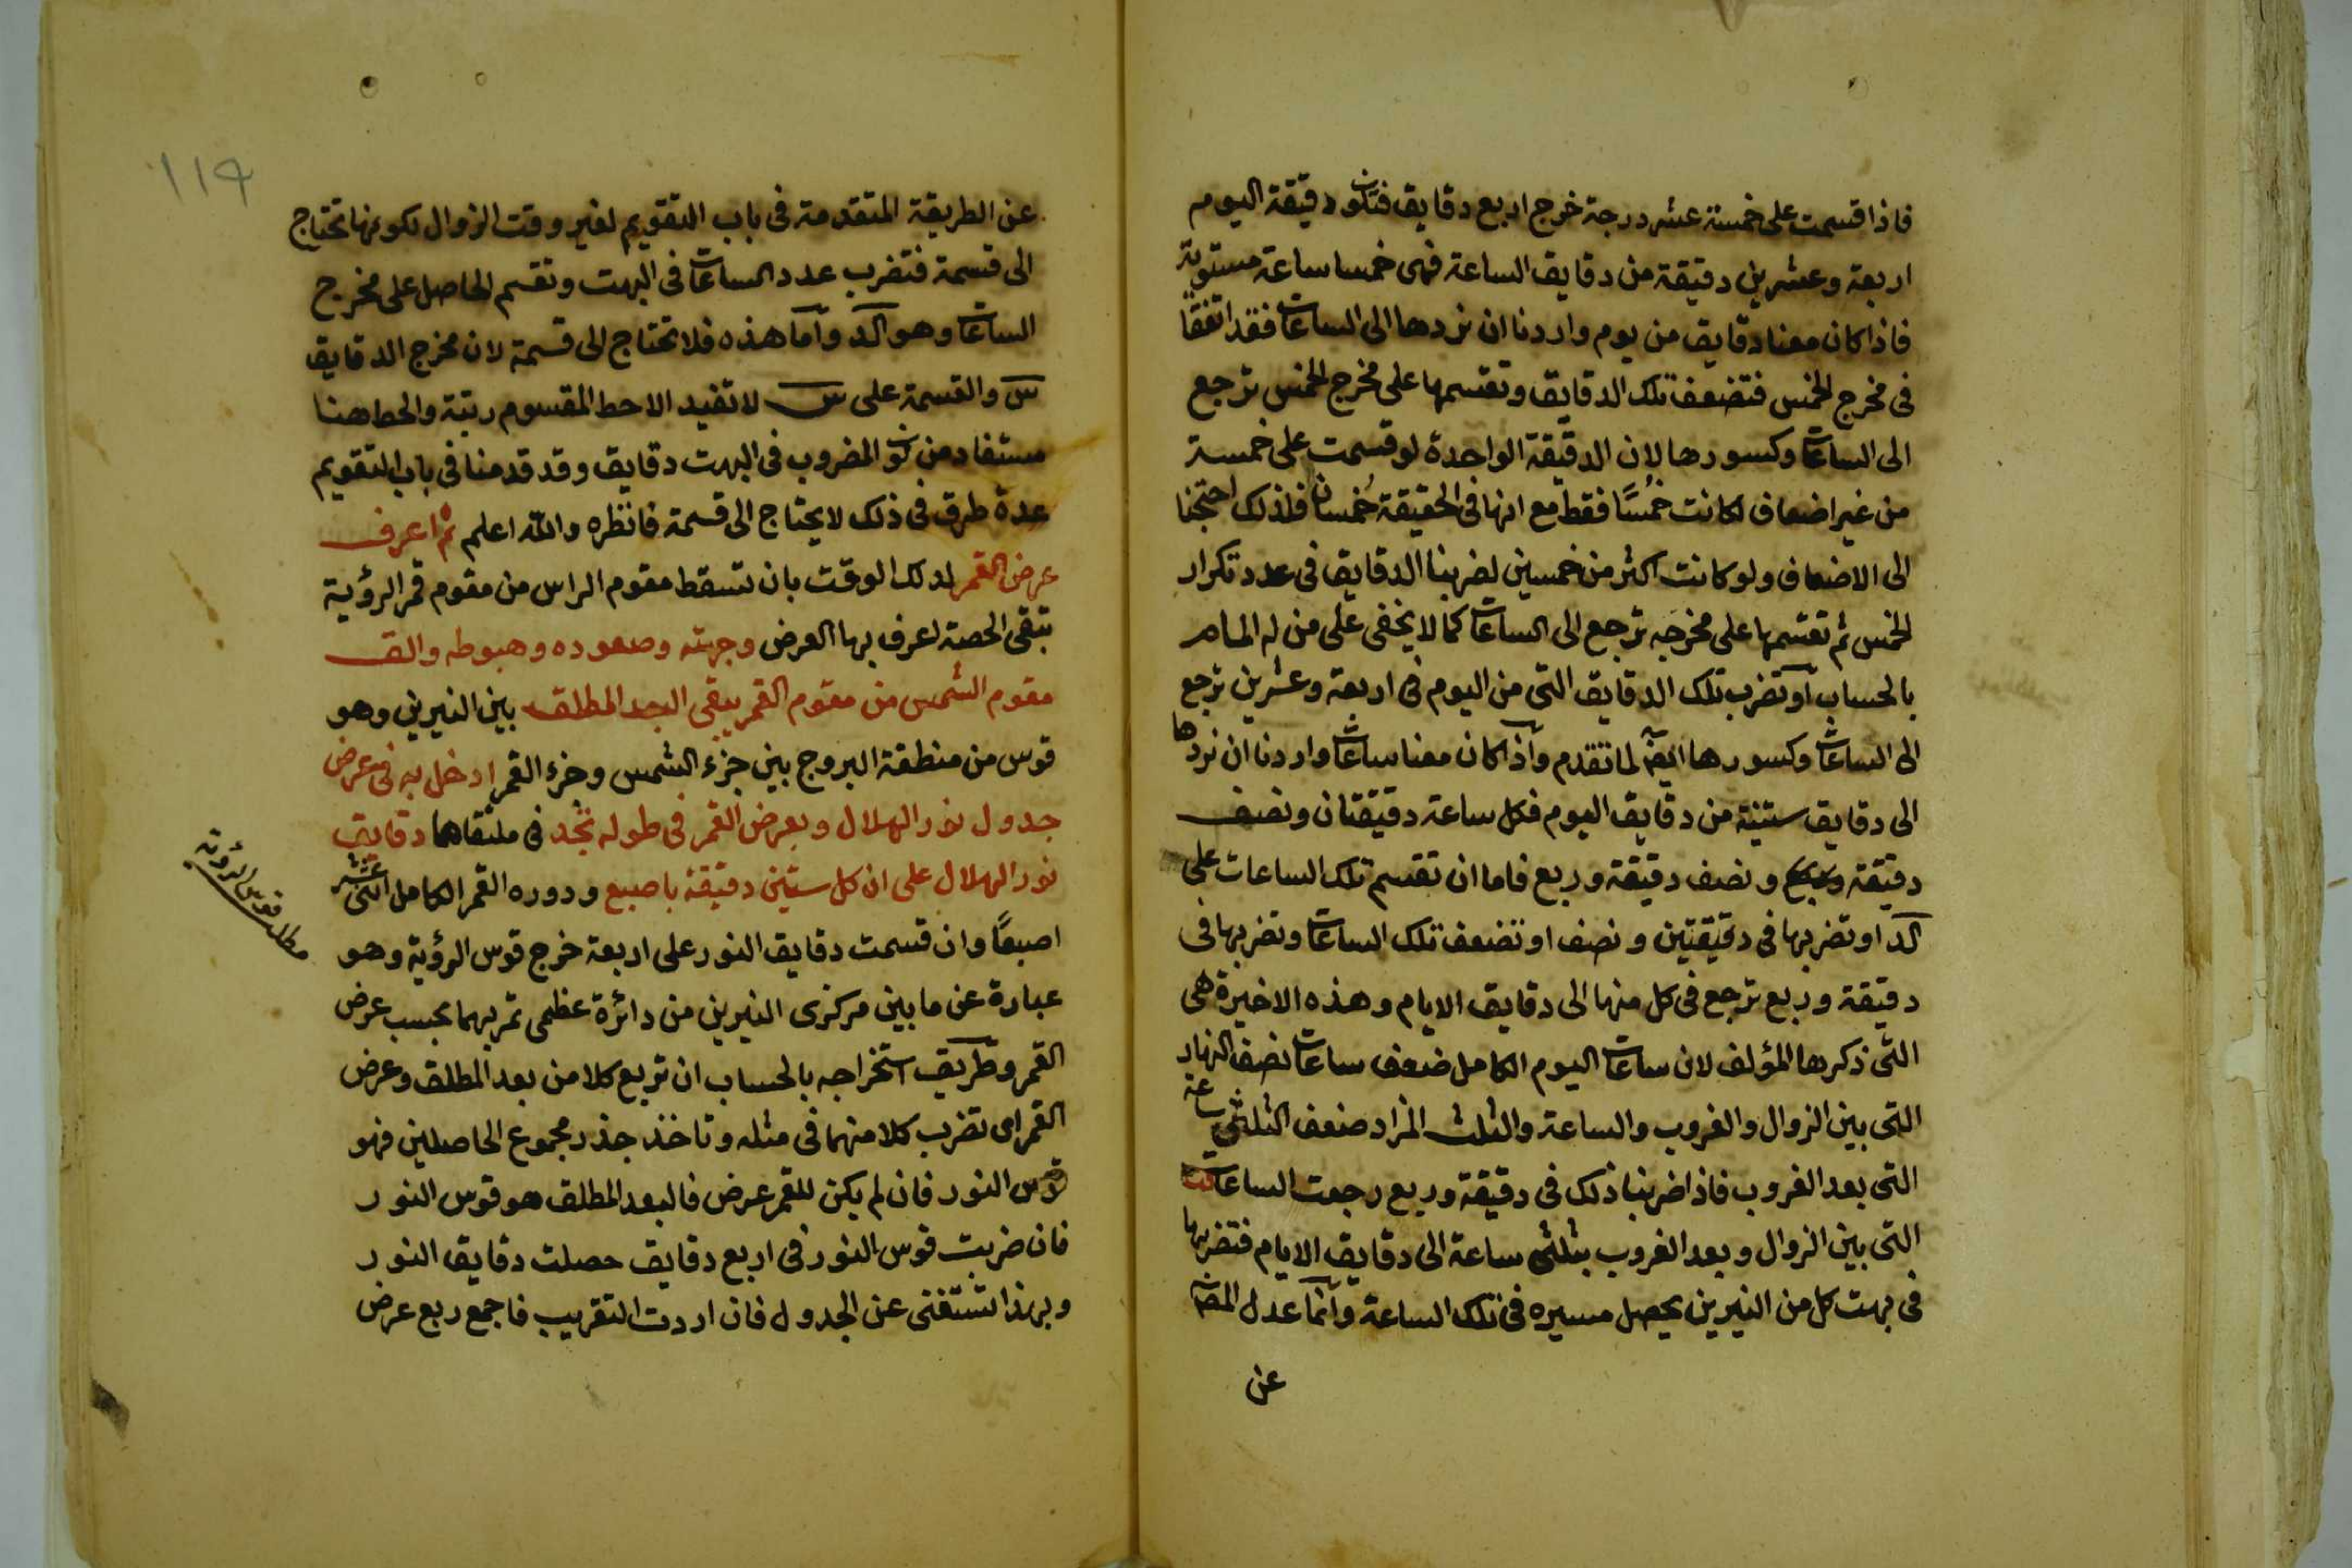 فاذا قسمت على خمسة عشر درجة خرج اربع دقايق فتكون دقيقة اليوم
اربعة وعشرين دقيقة من دقايق الساعة فهى خمسا ساعة مستوية
فاذا كان معنا دقايق من يوم واردنا ان نردها الى الساعات فقد اتفقا
فى مخرج الخمس فتضعف تلك الدقايق وتقسمها على مخرج الخمس ترجع
الى الساعات وكسورها لان الدقيقة الواحدة لو قسمت على خمسة
من غير اضعاف لكانت خمسًا فقط مع انها فى الحقيقة خمسان فلذلك احتجنا
الى الاضعاف ولو كانت اكثر من خمسين لضربنا الدقايق فى عدد تكرار
الخمس ثم تقسمها على مخرجه ترجع الى الساعات كما لا يخفى على من له المام
بالحساب او تضرب تلك الدقايق التى من اليوم فى اربعة وعشرين ترجع
الى الساعات وكسورها ايضا لما تقدم واذا كان معنا ساعات واردنا ان نردها
الى دقايق ستينية من دقايق اليوم فكل ساعة دقيقتان ونصف
دقيقة ونصف دقيقة وربع فاما ان تقسم تلك الساعات على
كد او تضربها فى دقيقتين ونصف او تضعف تلك الساعات وتضربها فى
دقيقة وربع ترجع فى كل منها الى دقايق الايام وهذه الاخيرة هى
التى ذكرها المؤلف لان ساعات اليوم الكامل ضعف ساعات نصف النهار
التى بين الزوال والغروب والساعة والثلث المزاد ضعف الثلثى ساعة
التى بعد الغروب فاذا ضربنا ذلك فى دقيقة وربع رجعت الساعات
التى بين الزوال وبعد الغروب بثلثى ساعة الى دقايق الايام فتضربها
فى بهت كل من النيرين يحصل مسيره فى تلك الساعة وانما عدل المص
عن
١١٩
عن الطريقة المتقدمة فى باب التقويم لغير وقت الزوال لكونها تحتاج
الى قسمة فتضرب عدد الساعات فى البهت وتقسم الحاصل على مخرج
الساعات وهو كد واما هذه فلا تحتاج الى قسمة لان مخرج الدقايق
س والقسمة على س لا تفيد الا حط المقسوم رتبة والحط هنا
مستفاد من كون المضروب فى البهت دقايق وقد قدمنا فى باب التقويم
عدة طرق فى ذلك لا يحتاج الى قسمة فانظره والله اعلم ثم اعرف
عرض القمر لذلك الوقت بان تسقط مقوم الراس من مقوم قمر الرؤية
تبقى الحصة اعرف بها العرض وجهته وصعوده وهبوطه والق
مقوم الشمس من مقوم القمر يبقى البعد المطلق بين النيرين وهو
قوس من منطقة البروج بين جزء الشمس وجزء القمر ادخل به فى عرض
جدول نور الهلال وبعرض القمر فى طوله تجد فى ملتقاهما دقايق
نور الهلال على ان كل ستين دقيقة باصبع ودوره القمر الكامل اثنى عشر
اصبعًا وان قسمت دقايق النور على اربعة خرج قوس الرؤية وهو
مطلب قوس الرؤية
عبارة عن ما بين مركزى النيرين من دائرة عظمى تمر بهما بحسب عرض
القمر وطريق استخراجه بالحساب ان تربع كلا من بعد المطلق وعرض
القمر اى تضرب كلا منهما فى مثله وتاخذ جذر مجموع الحاصلين فهو
قوس النور فان لم يكن للقمر عرض فالبعد المطلق هو قوس النور
فان ضربت قوس النور فى اربع دقايق حصلت دقايق النور
وبهذا تستغنى عن الجدول فان اردت التقريب فاجمع ربع عرض